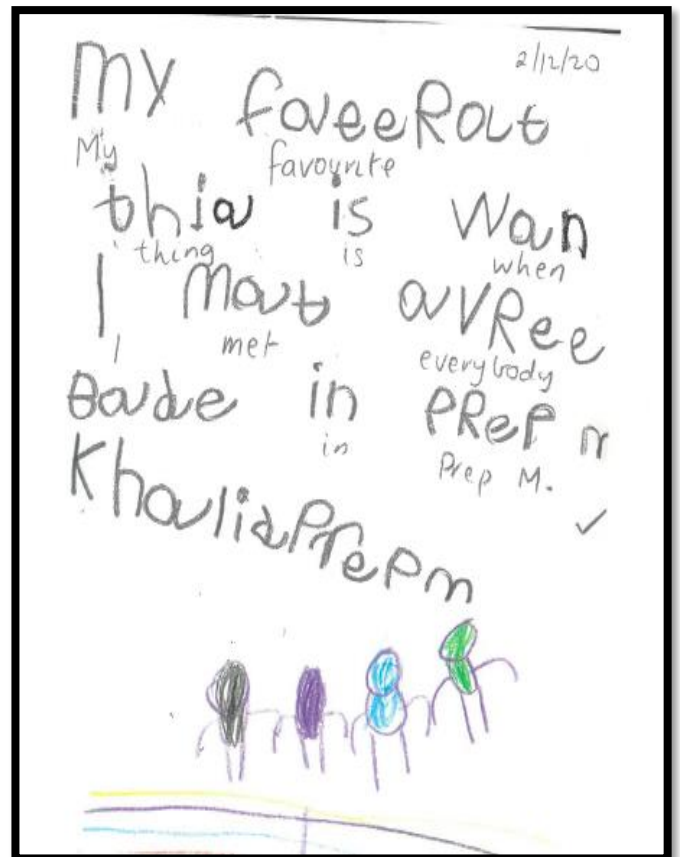 2/12/20
My faveeRat
My favourite
thia is Wan
thing is when
I Mat avRee
I met everybody
Bade in PReP m
in Prep M.
Khalia Prep m